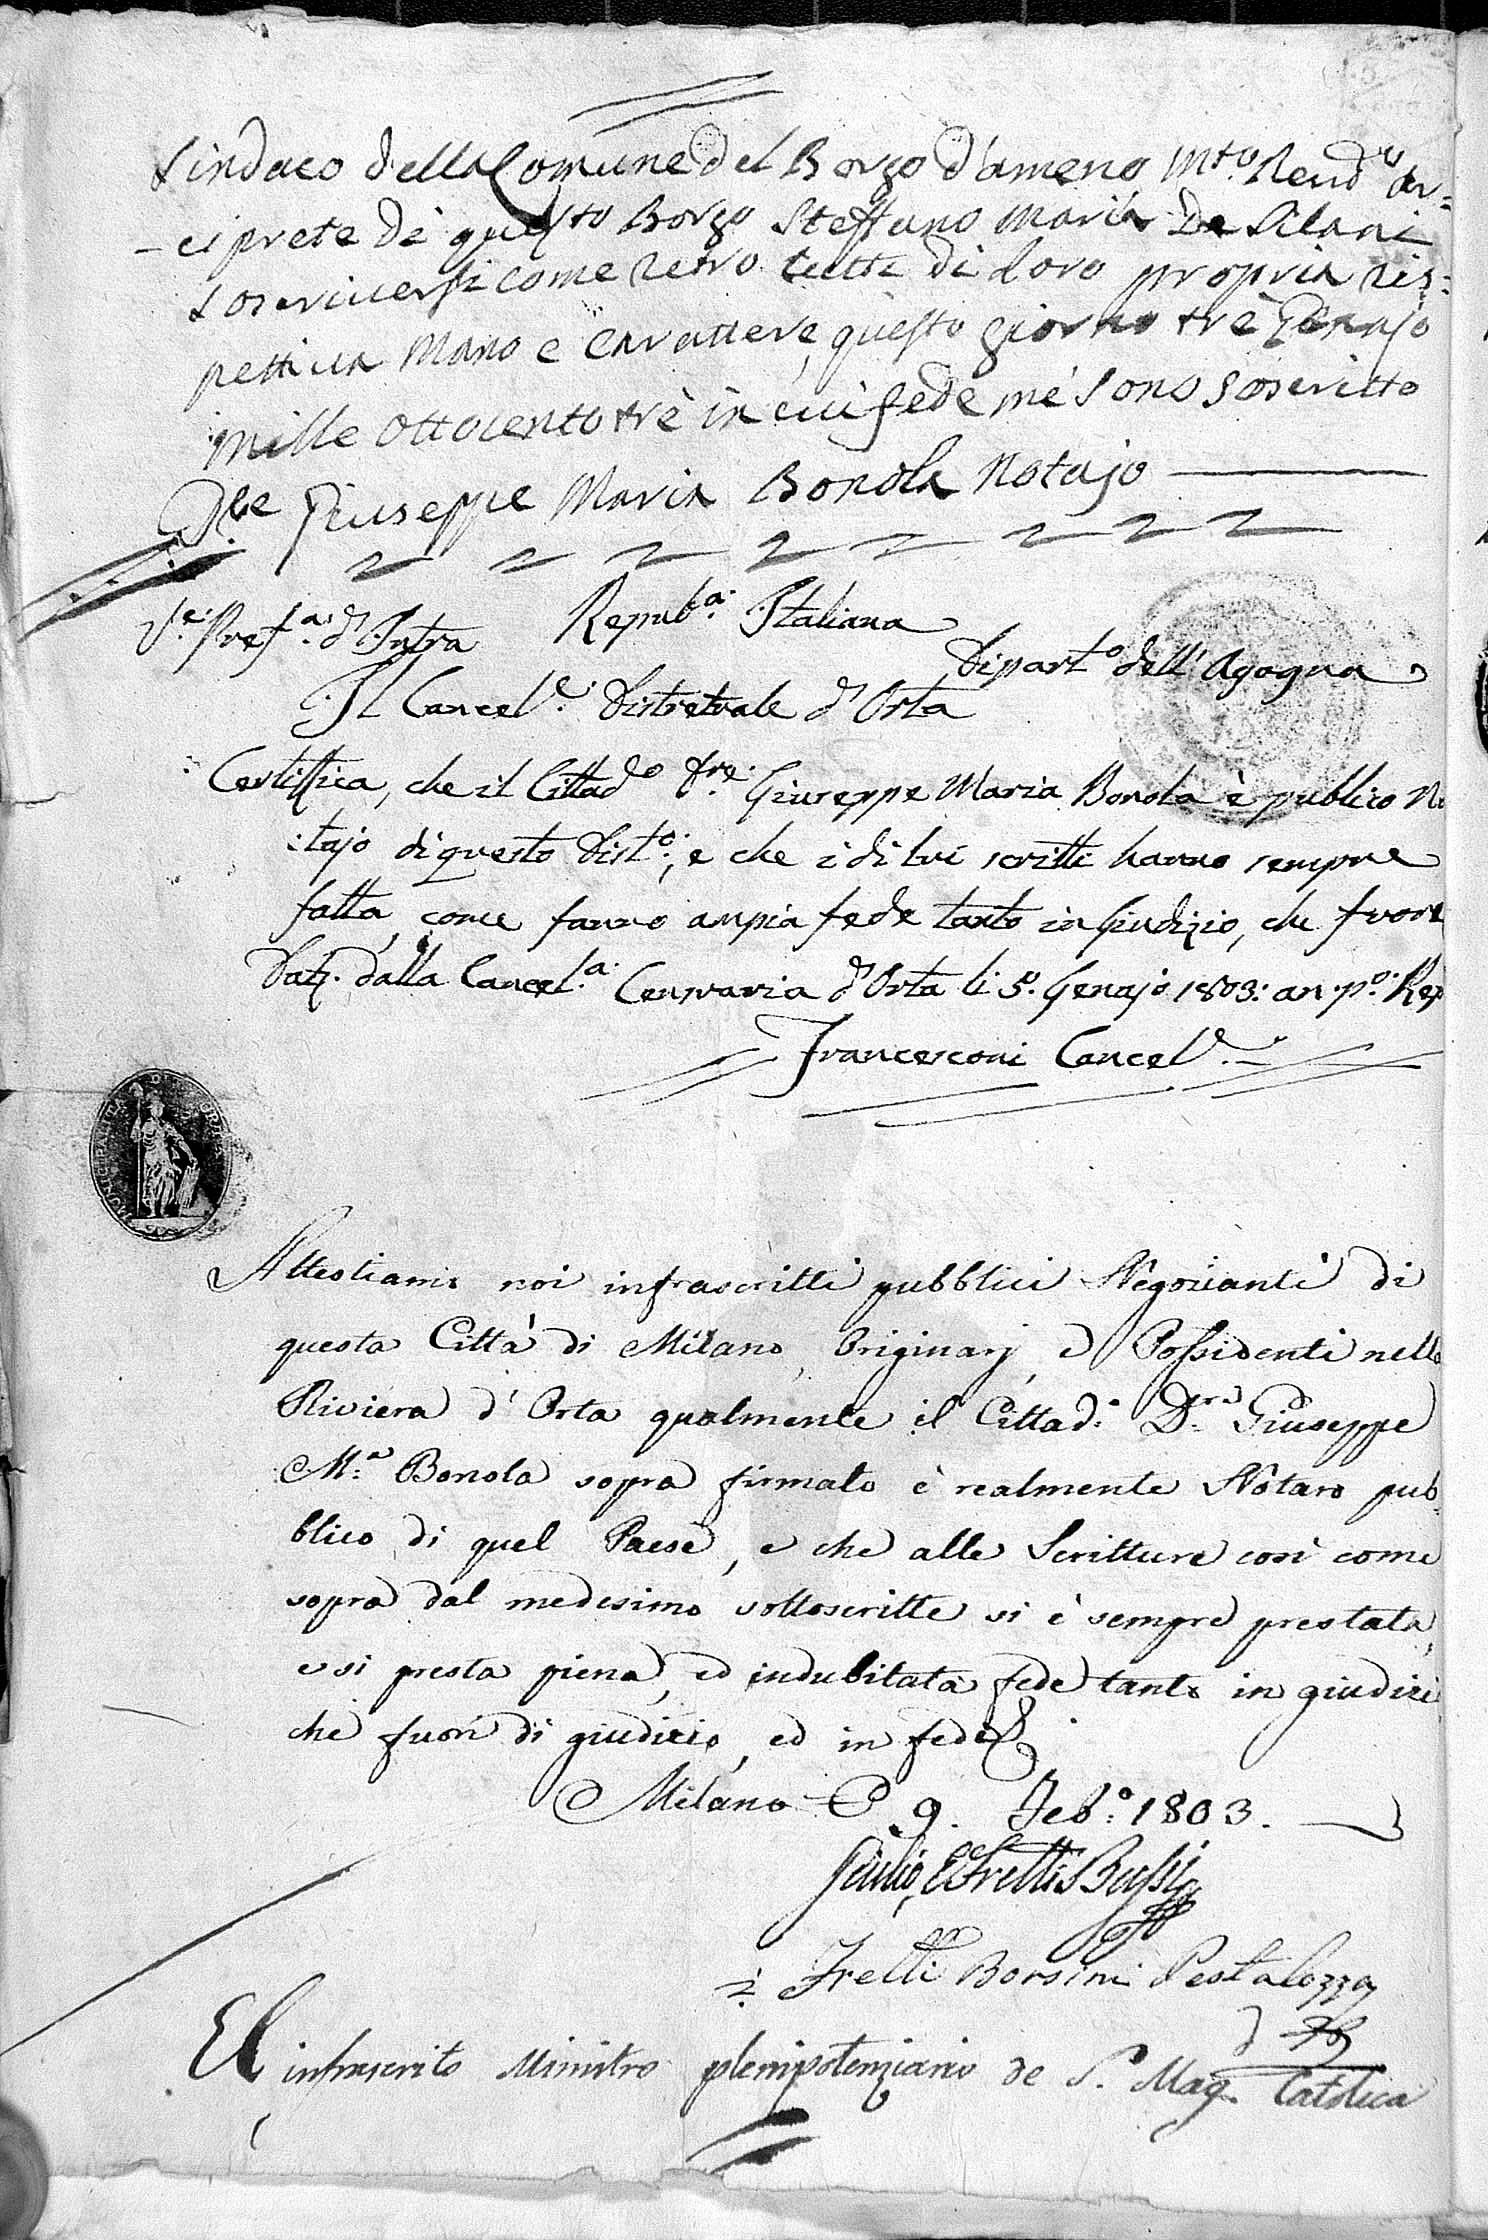 Sindaco della Comune del Borgo d'ameno Mto. Rendo. Ar=
=ciprete di questo Borgo Steffano Maria De Silani
soscriversi come retro tutti di loro propria ris=
pettiva Mano e Carattere, questo giorno trè Genajo
mille ottocento trè in cui fede mè sono soscritto
Giuseppe Maria Bonola Notajo
V.e Pref.a d'Intra Repub.a Italiana
Dipart.o dell'Agogna
Il Cancel.e Distretuale d'Orta
Certiffica, che il Cittad.o Giuseppe Maria Bonola è publico No
:tajo di questo Dist.o; e che i di lui scritti hanno sempre
fatta, come fanno ampia fede tanto in Giudizio, che fuori
Dat. dalla Cancel.a Censuaria d'Orta li 5. Genajo 1803: an. p.o Rep
Francesconi Cancel.e
MUNICIPALITA DI ORTA
Attestiamo noi infrascritti pubblici Negozianti di
questa Città di Milano, Originarj, e Possidenti nella
Riviera d'Orta qualmente il Cittad.o D.re Giuseppe
M.a Bonola sopra firmato è realmente Notaro pub=
blico di quel Paese, e che alle Scritture così come
sopra dal medesimo sottoscritte si è sempre prestata,
e si presta piena, ed indubitata fede tanto in giudizi
che fuori di giudizio, ed in fede
Milano 9. Feb.o 1803.
Giulio, e Frelli Bussi
Frelli Borsini Pestalozza
El infrascrito Ministro plenipotenziario de S. Mag. Catolica